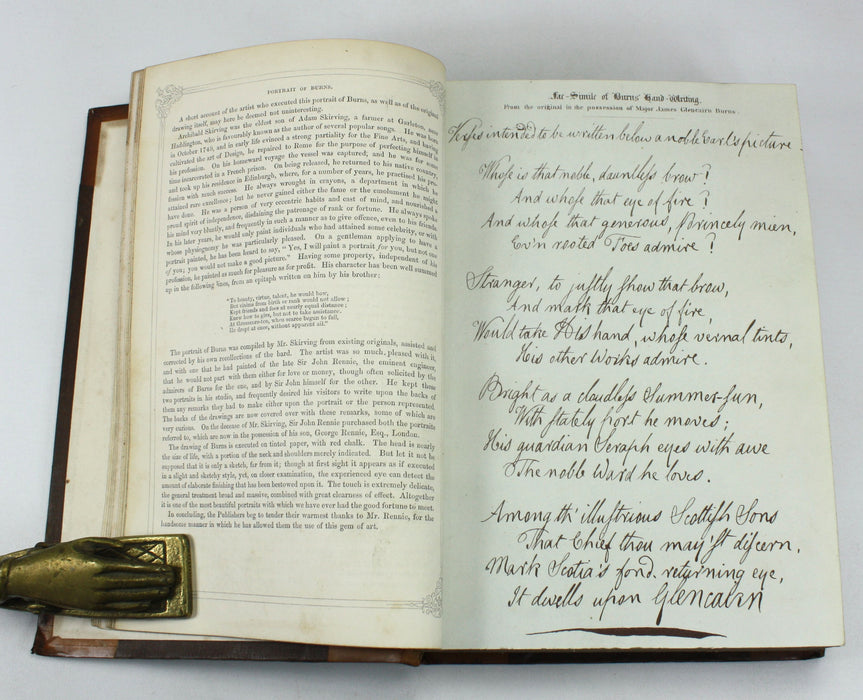 PORTRAIT OF BURNS.
A short account of the artist who executed this portrait of Burns, as well as of the original
drawing itself, may here be deemed not uninteresting.
Archibald Skirving was the eldest son of Adam Skirving, a farmer at Garleton, near
Haddington, who is favourably known as the author of several popular songs. He was born
in October 1749, and in early life evinced a strong partiality for the Fine Arts, and having
cultivated the art of Design, he repaired to Rome for the purpose of perfecting himself in
his profession. On his homeward voyage the vessel was captured; and he was for some
time incarcerated in a French prison. On being released, he returned to his native country,
and took up his residence in Edinburgh, where, for a number of years, he practised his pro-
fession with much success. He always wrought in crayons, a department in which he
attained rare excellence; but he never gained either the fame or the emolument he might
have done. He was a person of very eccentric habits and cast of mind, and nourished a
proud spirit of independence, disdaining the patronage of rank or fortune. He always spoke
his mind very bluntly, and frequently in such a manner as to give offence, even to his friends.
In his later years, he would only paint individuals who had attained some celebrity, or with
whose physiognomy he was particularly pleased. On a gentleman applying to have a
portrait painted, he has been heard to say, "Yes, I will paint a portrait for you, but not one
of you; you would not make a good picture." Having some property, independent of his
profession, he painted as much for pleasure as for profit. His character has been well summed
up in the following lines, from an epitaph written on him by his brother:
"To beauty, virtue, talent, he would bow,
But claims from birth or rank would not allow;
Kept friends and foes at nearly equal distance;
Knew how to give, but not to take assistance.
At threescore-ten, when scarce begun to fail,
He dropt at once, without apparent ail."
The portrait of Burns was compiled by Mr. Skirving from existing originals, assisted and
corrected by his own recollections of the bard. The artist was so much pleased with it,
and with one that he had painted of the late Sir John Rennie, the eminent engineer,
that he would not part with them either for love or money, though often solicited by the
admirers of Burns for the one, and by Sir John himself for the other. He kept these
two portraits in his studio, and frequently desired his visitors to write upon the backs of
them any remarks they had to make either upon the portrait or the person represented.
The backs of the drawings are now covered over with these remarks, some of which are
very curious. On the decease of Mr. Skirving, Sir John Rennie purchased both the portraits
referred to, which are now in the possession of his son, George Rennie, Esq., London.
The drawing of Burns is executed on tinted paper, with red chalk. The head is nearly
the size of life, with a portion of the neck and shoulders merely indicated. But let it not be
supposed that it is only a sketch, far from it; though at first sight it appears as if executed
in a slight and sketchy style, yet, on closer examination, the experienced eye can detect the
amount of elaborate finishing that has been bestowed upon it. The touch is extremely delicate,
the general treatment broad and massive, combined with great clearness of effect. Altogether
it is one of the most beautiful portraits with which we have ever had the good fortune to meet.
In concluding, the Publishers beg to tender their warmest thanks to Mr. Rennie, for the
handsome manner in which he has allowed them the use of this gem of art.
Fac-Simile of Burns' Hand-Writing.
From the original in the possession of Major James Glencairn Burns.
Verses intended to be written below a noble Earl's picture
Whose is that noble, dauntless brow?
And whose that eye of fire?
And whose that generous, Princely mien,
Ev'n rooted Foes admire?
Stranger, to justly show that brow,
And mark that eye of fire,
Would take His hand, whose vernal tints,
His other Works admire.
Bright as a cloudless Summer-sun,
With stately port he moves;
His guardian Seraph eyes with awe
The noble Ward he loves.
Among th' illustrious Scottish Sons
That Chief thou may'st discern,
Mark Scotia's fond returning eye,
It dwells upon Glencairn